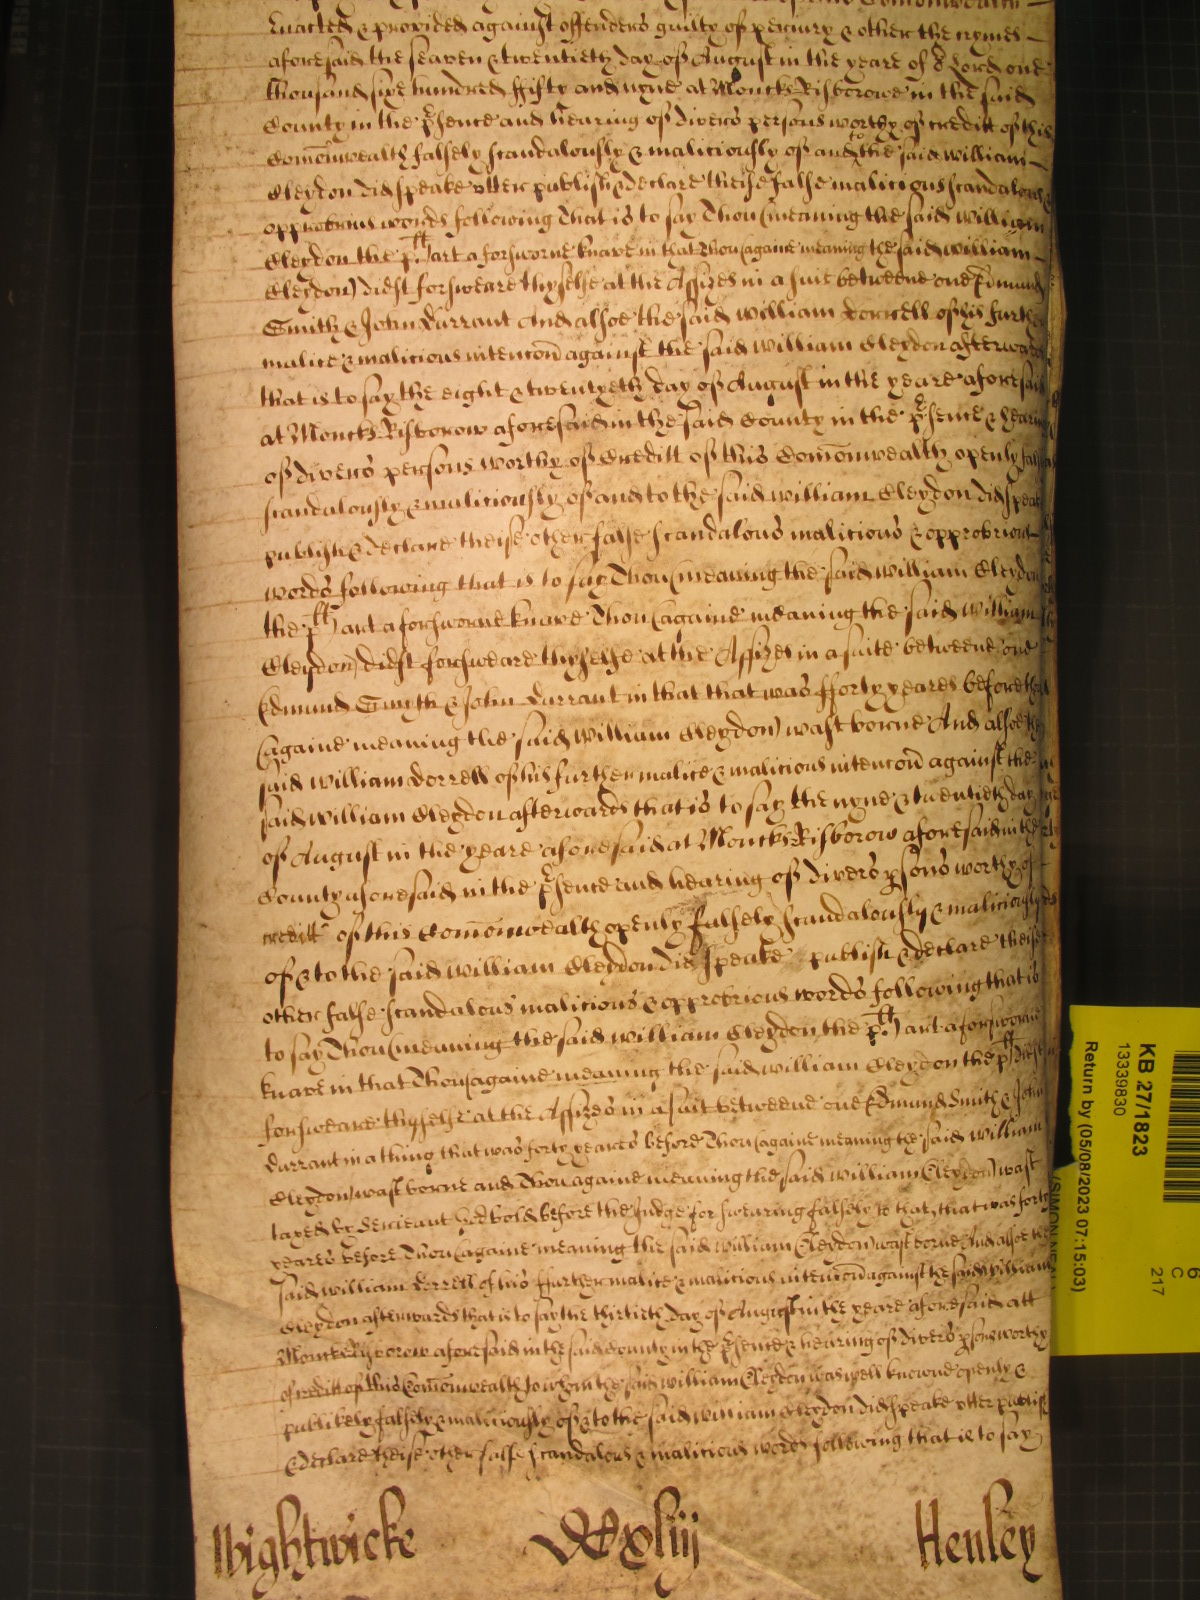 Enacted & provided against offenders guilty of periury & other the crymes
aforesaid the seaven & twentieth day of August in the yeare of or Lord one
thousand sixe hundred ffifty and nyne at Moncks Risborowe in the said
County in the psence and hearing of divers persons worthy of creditt of this
Comonwealth falsely scandalously & maliciously of and to the said William
Cleydon did speake vtter publish & declare theise false malicious scandalous &
opprobrius words following That is to say Thou (meaning the said William
Cleydon the plt) art a forsworne knave in that Thou (againe meaning the said William
Cleydon) didst forsweare thyselfe at the Assizes in a suit betweene one Edmund
Smith & John Durrant And alsoe the said William Dorrell of his further
malice & malicious intencon against the said William Cleydon afterwards
that is to say the eight & twentyeth day of August in the yeare aforesaid
at Moncks Risborow aforesaid in the said County in the psence & hearing
of divers persons worthy of Creditt of this Comonwealth openly falsely
scandalously & maliciously of and to the said William Cleydon did speake
publish & declare theise other false scandalous malicious & opprobrious
words following that is to say Thou (meaning the said William Cleydon
the plt) art a forsworne knave Thou (againe meaning the said William
Cleydon) didst forsweare thyselfe at the Assizes in a suite betweene one
Edmund Smyth & John Durrant in that that was fforty yeares before thou
(againe meaning the said William Cleydon) wast borne And alsoe the
said William Dorrell of his further malice & malicious intencon against the
said William Cleydon afterwards that is to say the nyne & twentieth day
of August in the yeare aforesaid at Moncks Risborow aforesaid in the
County aforesaid in the psence and hearing of divers psons worthy of
creditt of this Comonwealth openly falsely scandalously & maliciously
of & to the said William Cleydon did speake publish & declare theise
other false scandalous malicious & opprobrious words following that is
to say Thou (meaning the said William Cleydon the plt) art a forsworne
knave in that Thou (againe meaning the said William Cleydon the plt) didst
forsweare thyselfe at the Assizes in a suit betweene one Edmund Smith & John
Durrant in a thing that was forty yeares before Thou (againe meaning the said William
Cleydon) wast borne and Thou againe meaning the said William Cleydon) wast
taxed by Serieant before the Judge for swearing falsely to that, that was forty
yeares before Thou (againe meaning the said William Cleydon) wast borne And alsoe the
said William Dorrell of his ffurther malice & malicious intencon against the said William
Cleydon afterwards that is to say the thirtieth day of August in the yeare aforesaid att
Moncks Risborow aforesaid in the said County in the psence & hearing of divers psons worthy
of creditt of this Comonwealth to whom the said William Cleydon was well knowne openly &
publikely falsely & maliciously of & to the said William Cleydon did speake vtter publish
& declare theise other false scandalous & malicious words following that is to say
Wightwicke Henley